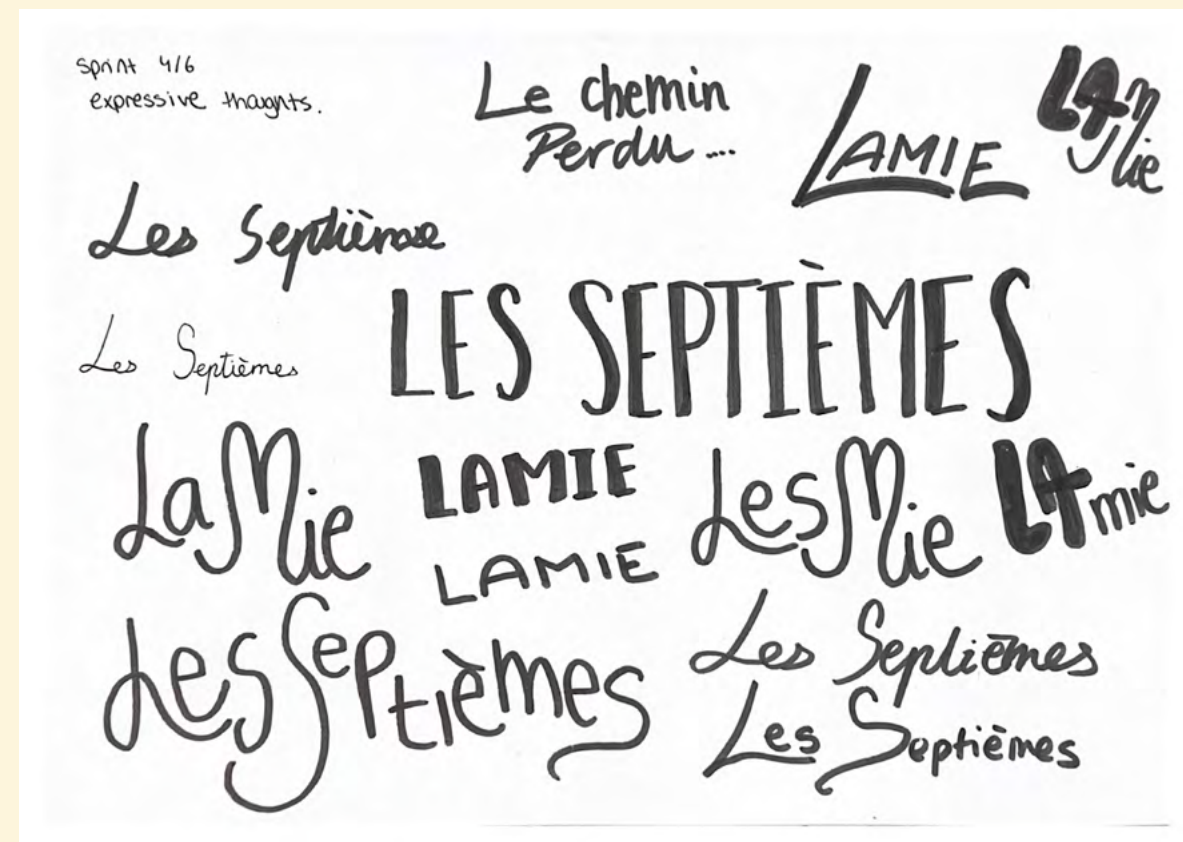 Sprint 4/6
expressive thougnts.
Le chemin
Perdu ....
LAMIE
LAMie
Les Septièmse
Les Septièmes
LES SEPTIÈMES
LaMie
LAMIE
LAMIE
LesMie
LAmie
LesSeptièmes
Les Septièmes
Les Septièmes